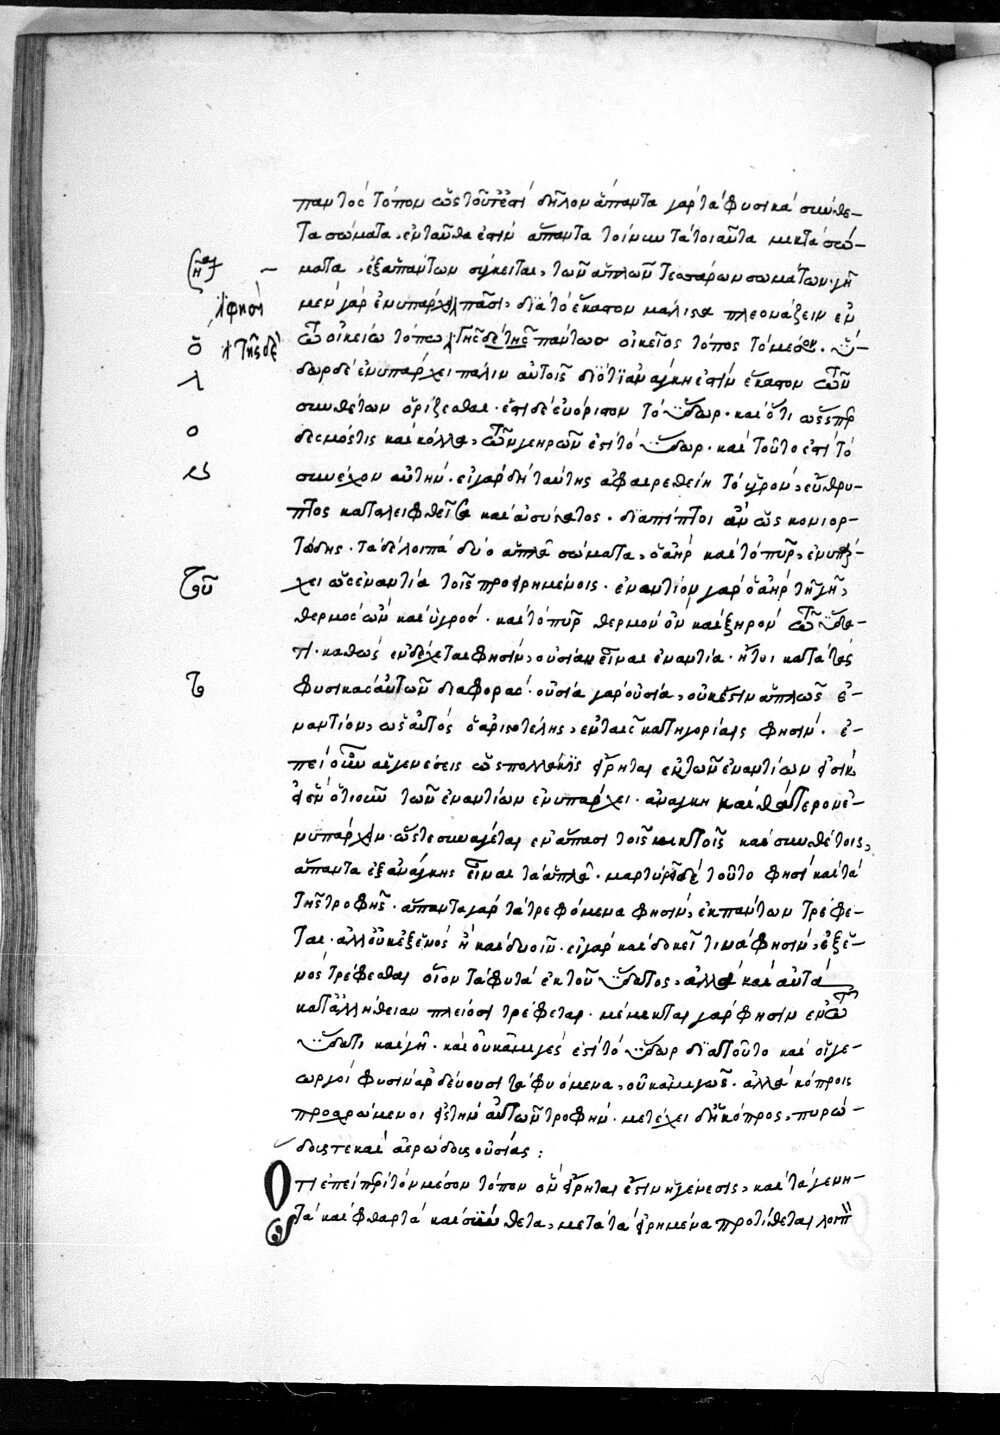 παντὸς τόπον ὡς τοῦτέστι δῆλον ἅπαντα γὰρ τὰ φυσικὰ συνθε-
τα σώματα, ἐνταῦθα ἐστὶν ἅπαντα τοίνυν τὰ τοιαῦτα μικτὰ σώ-
ματα, ἐξ ἁπάντων σύγκειται, τῶν ἁπλῶν τεσσάρων σωμάτων. γῆ
μὲν γὰρ ἐνυπάρχειν πᾶσι, διὰ τὸ ἕκαστον μάλιστα πλεονάζειν ἐν
φησὶ
τῶ οἰκείω τόπω. τῆς δὲ γῆς πάντως οἰκεῖος τόπος τὸ μέσον. ὕ-
ὅ τῆς δὲ
δωρ δὲ ἐνυπάρχει πάλιν αὐτοῖς διότι ἀνάγκη ἐστὶν ἕκαστον τῶν
λ
συνθέτων ὁρίζεσθαι. ἔστι δὲ εὐόριστον τὸ ὕδωρ. καὶ ὅτι ὥσπερ
δεσμός τις καὶ κόλλα, τῶν ξηρῶν ἐστὶ τὸ ὕδωρ. καὶ τοῦτο ἐστὶ τὸ
ο
συνέχον αὐτήν. εἰ γὰρ δὴ ταύτης ἀφαιρεθείη τὸ ὑγρὸν, εὔθρυ-
πτος καταλειφθεῖσα καὶ ἀσύστατος. διαπίπτοι ἂν ὡς κονιορ-
τώδης. τὰ δὲ λοιπὰ δύο ἁπλᾶ σώματα, ὁ ἀὴρ καὶ τὸ πῦρ, ἐνυπάρ-
χει ὡς ἐναντία τοῖς προειρημένοις. ἐναντίον γὰρ ὁ ἀὴρ τῆ γῆ,
θερμὸς ὢν καὶ ὑγρός. καὶ τὸ πῦρ θερμὸν ὂν καὶ ξηρὸν τῶ ὕδα-
τι. καθὼς ἐνδέχεται φησὶν, οὐσίαν εἶναι ἐναντία. ἤτοι κατὰ τὰς
φυσικὰς αὐτῶν διαφοράς. οὐσία γὰρ οὐσία, οὐκ ἔστιν ἁπλῶς ἐ-
ναντίον, ὡς αὐτὸς ὁ ἀριστοτέλης, ἐν ταῖς κατηγορίαις φησίν. ἐ-
πεὶ οὖν αἱ γενέσεις ὡς πολλάκις εἴρηται ἐκ τῶν ἐναντίων εἰσὶ,
ἐν ὁτιοῦν τῶν ἐναντίων ἐνυπάρχει. ἀνάγκη καὶ θάτερον ἐ-
νυπάρχειν. ὥστε συνάγεται ἐν ἅπασι τοῖς μικτοῖς καὶ συνθέτοις,
ἅπαντα ἐξ ἀνάγκης εἶναι τὰ ἁπλᾶ. μαρτυρεῖ δὲ τοῦτο φησὶ καὶ τὰ
τῆς τροφῆς. ἅπαντα γὰρ τὰ τρεφόμενα φησὶν, ἐκ πάντων τρέφε-
ται. ἀλλ' οὐκ ἐξ ἑνὸς ἢ καὶ δυοῖν. εἰ γὰρ καὶ δοκεῖ τινὰ φησὶν, ἐξ ἑ-
νὸς τρέφεσθαι οἷον τὰ φυτὰ ἐκ τοῦ ὕδατος, ἀλλὰ καὶ αὐτὰ
κατ' ἀλήθειαν πλείοσι τρέφεται. μέμικται γὰρ φησὶν ἐν τῶ
ὕδατι καὶ γῆ. καὶ οὐκ ἀμιγὲς ἐστὶ τὸ ὕδωρ διὰ τοῦτο καὶ οἱ γε-
ωργοὶ φυσὶν ἀρδεύουσι τὰ φυόμενα, οὐκ ἀμιγῶς. ἀλλὰ κόπροις
προσχρώμενοι εἰς τὴν αὐτῶν τροφήν. μετέχει δὴ κόπρος, πυρώ-
δους τε καὶ ἀερώδους οὐσίας:
Ὅτι ἐπεὶ περὶ τὸν μέσον τόπον ὡς εἴρηται ἐστὶν ἡ γένεσις, καὶ τὰ γενη-
τὰ καὶ φθαρτὰ καὶ σύνθετα, μετὰ τὰ εἰρημένα προτίθεται λοιπ